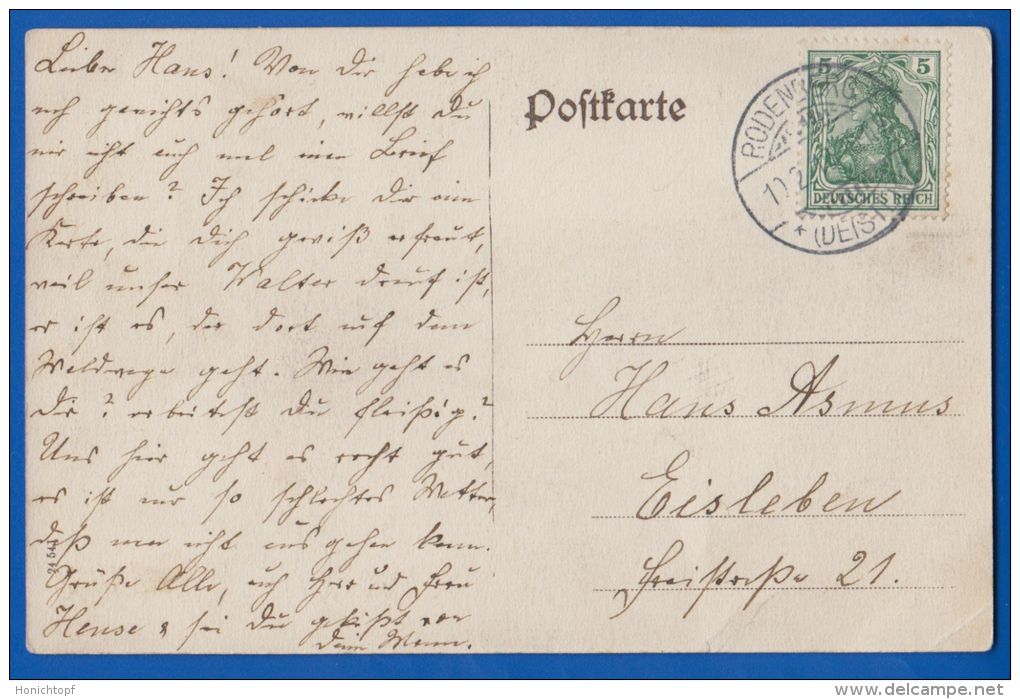 Lieber Hans! Von Dir habe ich
noch garnichts gehört, willst Du
mir nicht auch mal einen Brief
schreiben? Ich schicke Dir eine
Karte, die Dich gewiß erfreut,
weil unser Walter drauf ist,
er ist es, der dort auf dem
Waldwege geht. Wie geht es
Dir? arbeitest Du fleißig?
Uns hier geht es recht gut,
es ist nur so schlechtes Wetter,
daß man nicht ausgehen kann.
Grüße Alle, auch Herr und Frau
Hense & sei Du geküßt von
Deine
24 54
Postkarte
5 5
DEUTSCHES REICH
RODENBERG
* (DEIST
Herrn
Hans Asmus
Eisleben
Freistraße 21.
Honichtopf
delcampe.net